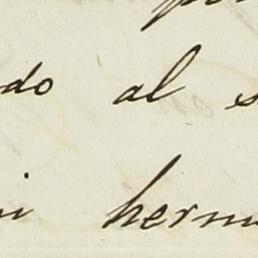 do al s
i herm